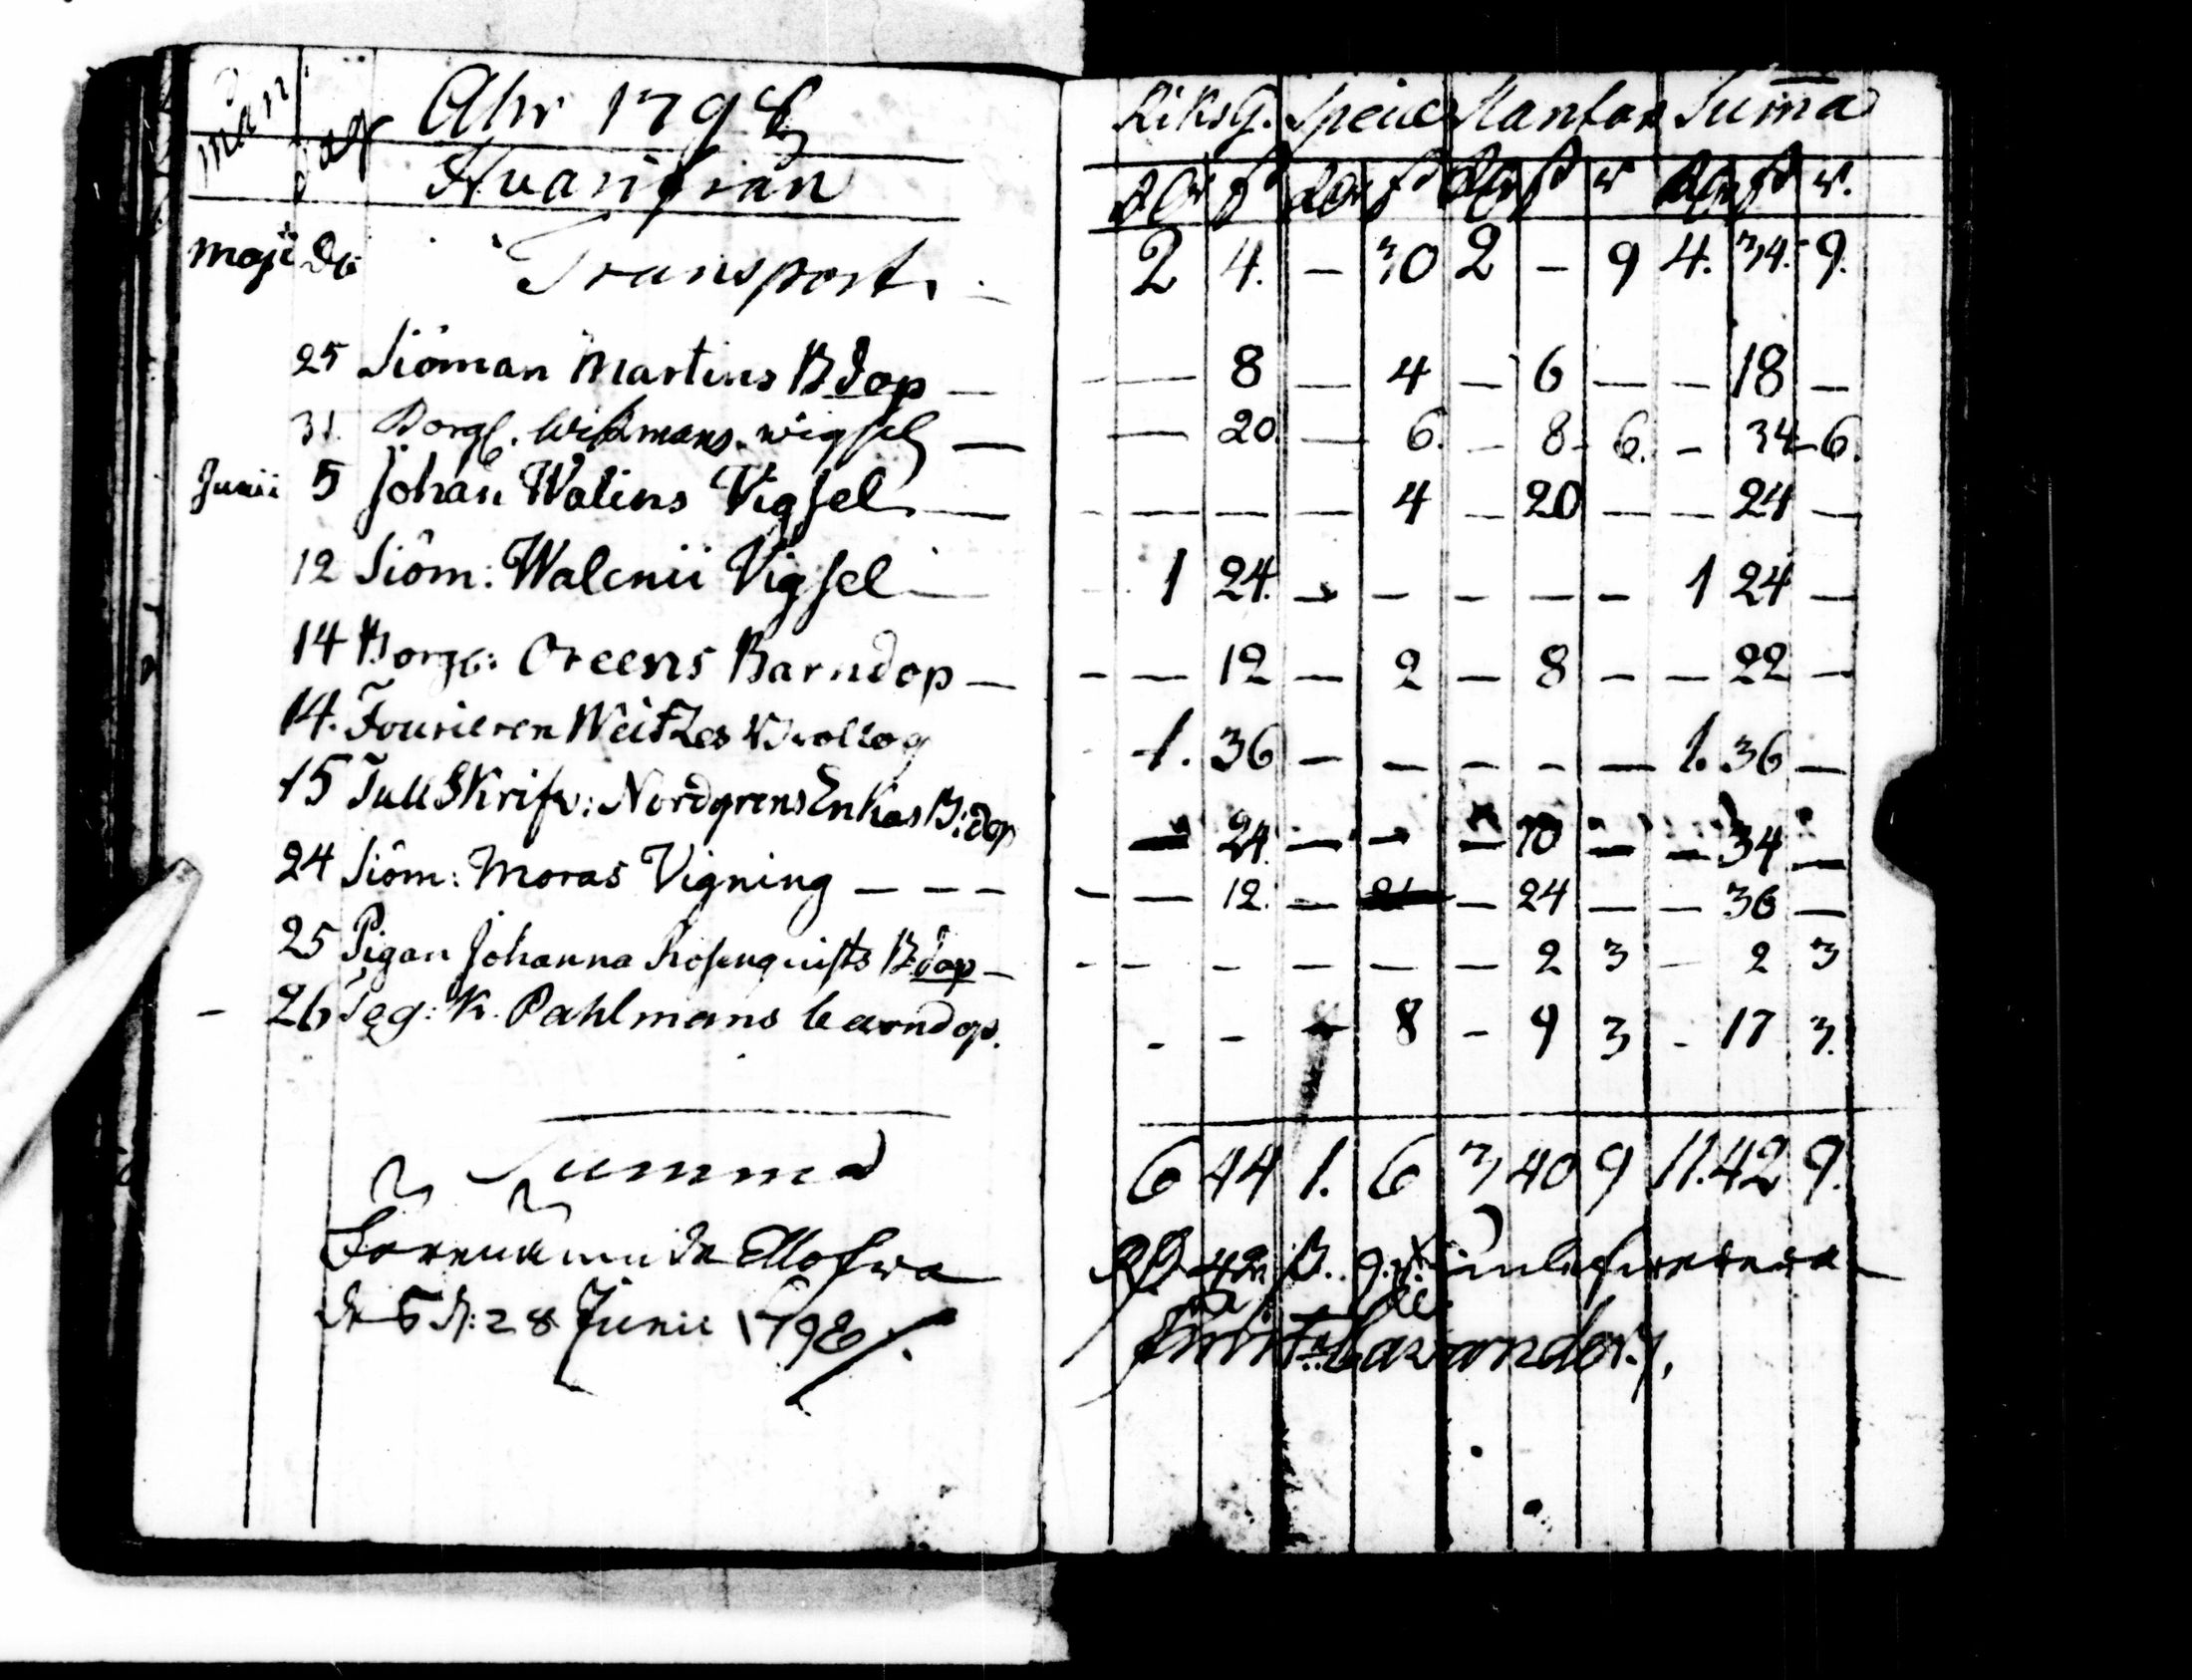 Mån dag Åhr 1798 RiksG. Speice Slantar Suma
Hvarifrån
Maji Transport. 2 4. — 30 2 — 9 4. 34. 9.
25 Siöman Martins Bdop — — 8 — 4 — 6 — — 18 —
31. Borg. Wikmans wigsel — — 20. — 6. — 8 6. — 34 6.
Junii 5 Johan Walins Vigsel — — — — 4 — 20 — — 24 —
12 Siöm: Walenii Vigsel — 1 24. — — — — — 1 24 —
14 Borg: Oreens Barndop — — 12 — 2 — 8 — — 22 —
14. Fourieren Weitzes 1. 36 — — — — — 1. 36 —
15 Tullskrifv: Nordgrens Enkas B:dop — 24. — — — 10 — — 34 —
24 Siöm: Moras Vigning — — — — 12. — — 24 — — 36 —
25 Pigan Johanna Rosenquists Bdop — — — — — — 2 3 — 2 3
— 26 K. Pahlmans barndop. — — — 8 — 9 3 — 17 3.
Summa 6 44 1. 6 3 40 9 11. 42 9.
42 ß. 9
28 Junii 1798